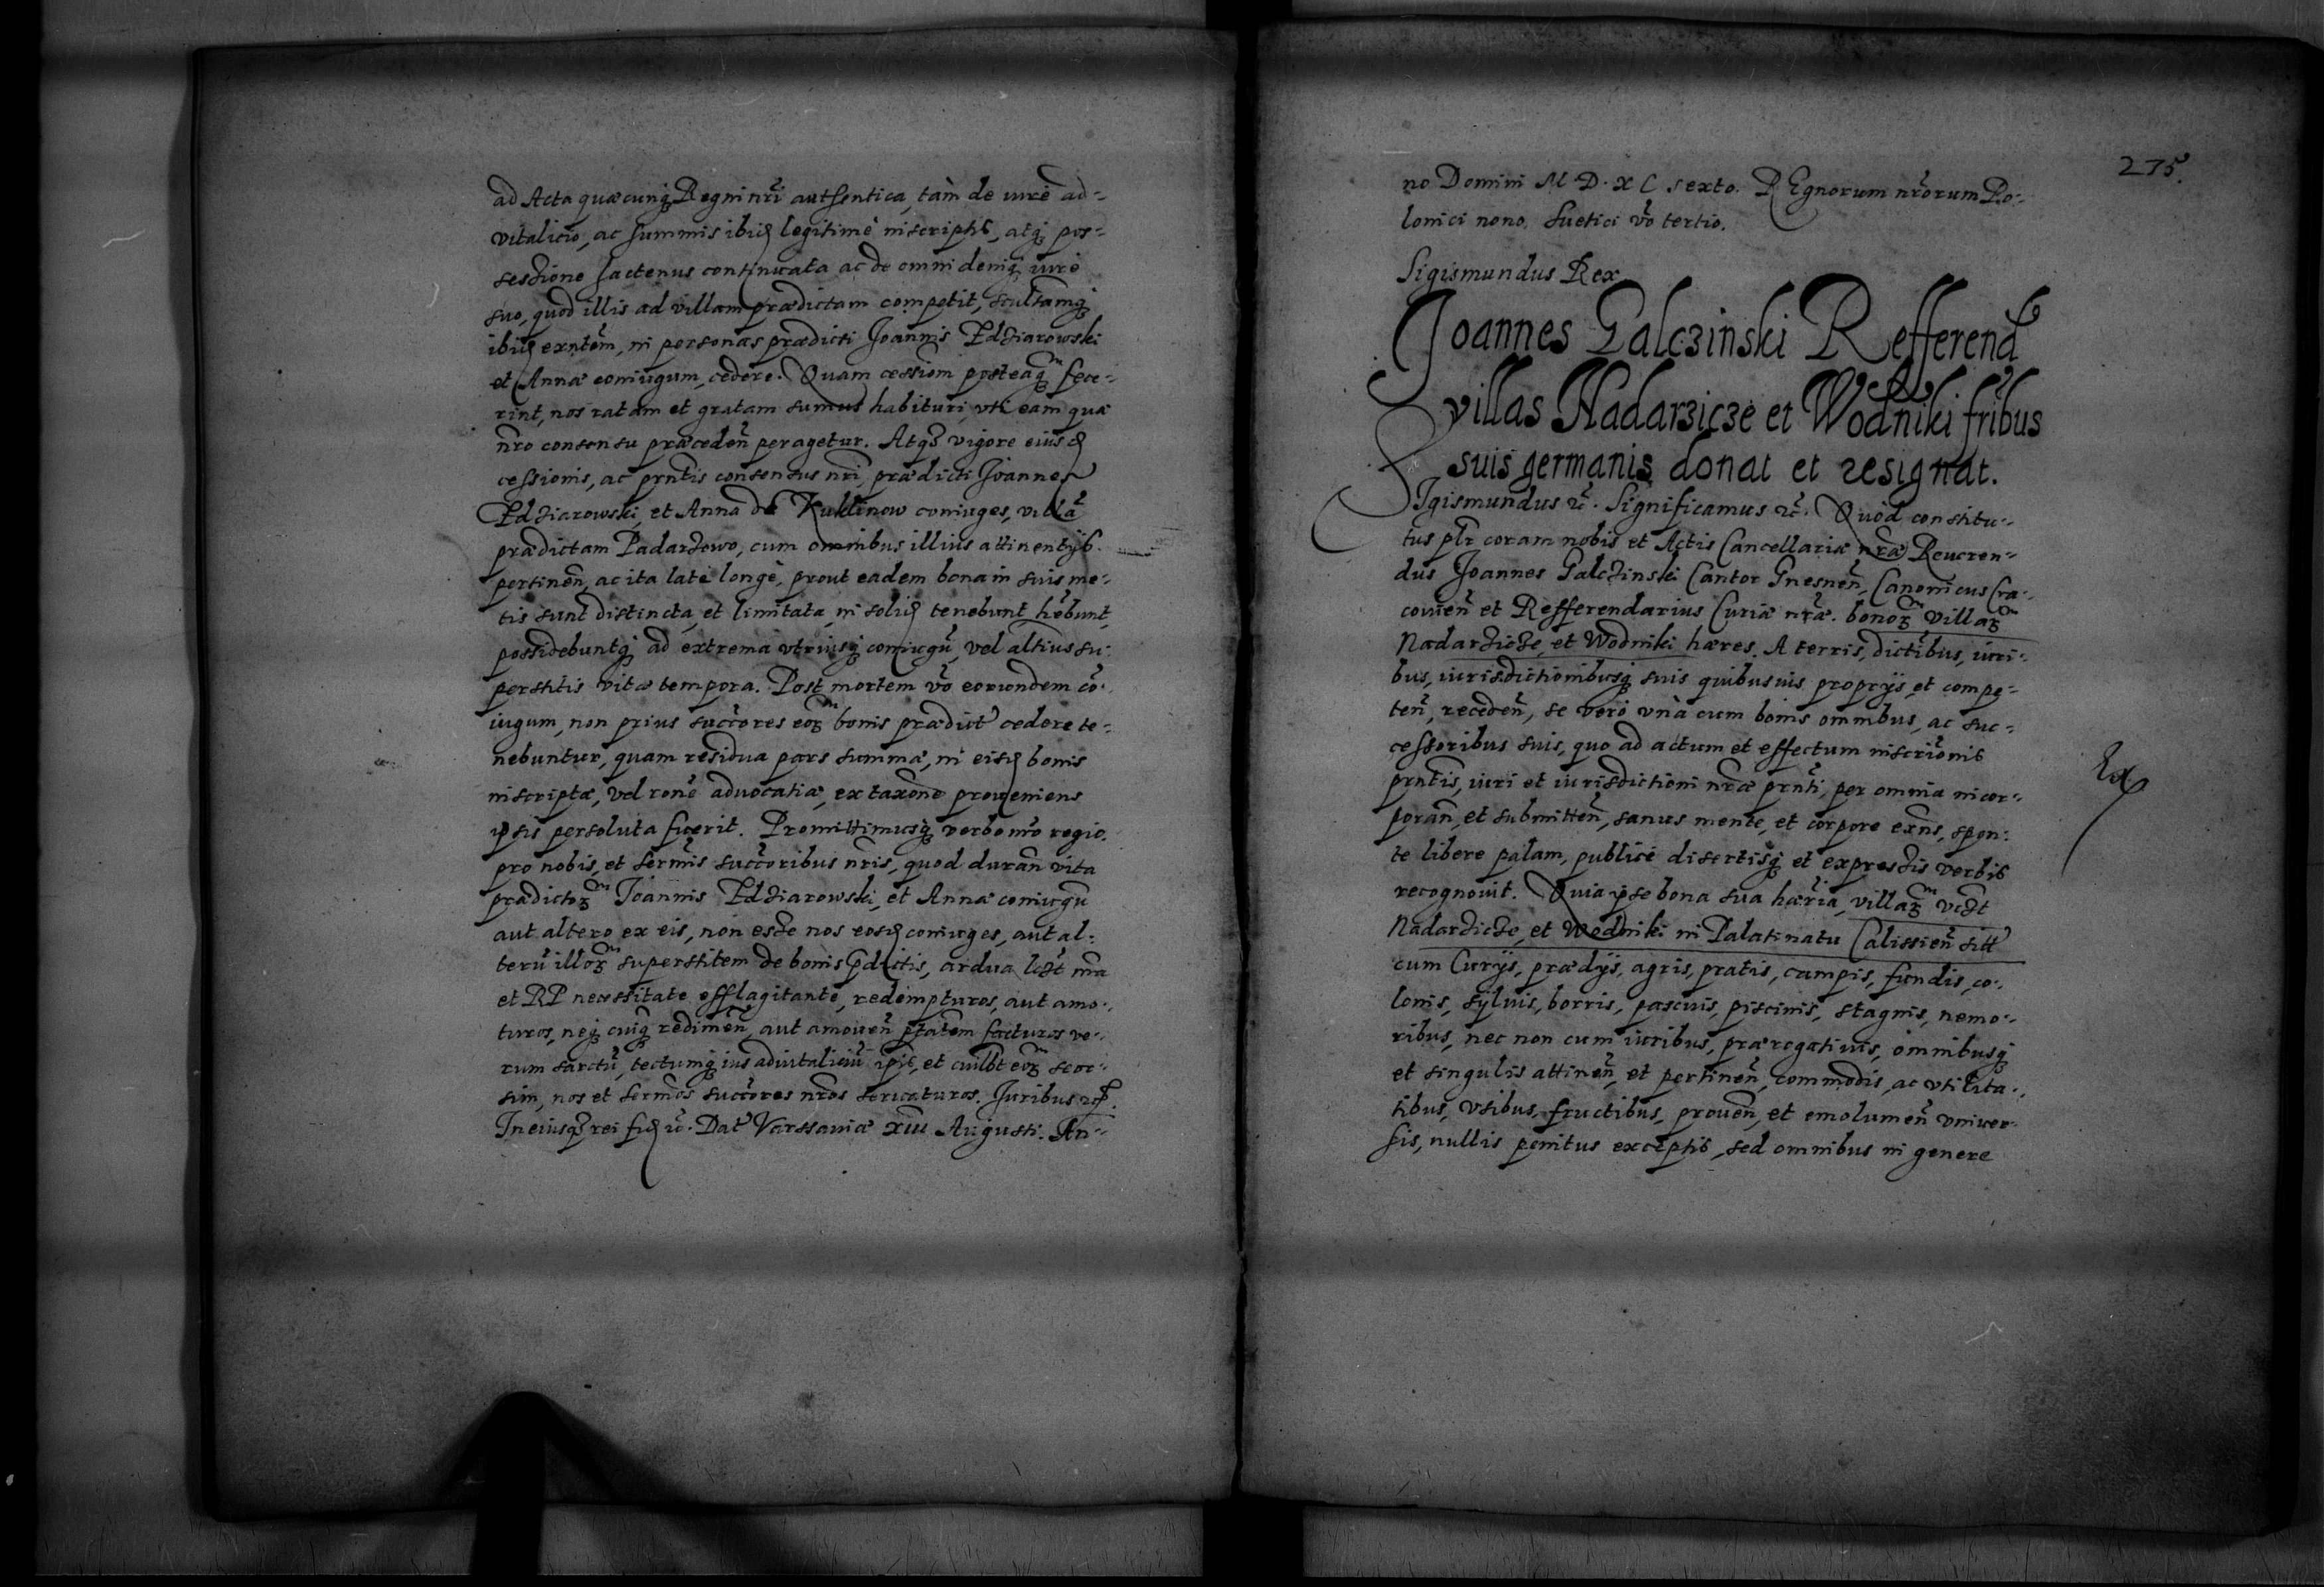 ad Acta quæcunq; Regni nr̃i authentica, tàm de iure ad-
vitalicio, ac summis ibid. legitime inscriptis, atq; pos-
sessione hactenus continuata ac de omni deniq; iure
suo, quod illis ad villam prædictam competit, scultæmq;
ibid. exñtem, in personas prædicti Joannis Idziarowski
et Annæ coniugum, cedere. Quam cessioñem posteaq̃m fece-
rint, nos ratam et gratam sumus habituri, vti eam quæ
nr̃o consensu præceden̄ peragetur. Atq; vigore eiusd.
cessionis, ac pr̃ntis consensus nr̃i, prædicti Joannes
Idziarowski, et Anna de Kuklinow coniuges, villã
prædictam Padarzewo, cum omnibus illius attinentijs.
pertinen̄, ac ita latè longè, prout eadem bona in suis me-
tis sunt distincta, et limitata, in solid. tenebunt, hẽbunt,
possidebuntq; ad extrema vtriusq; coniugũ, vel altius su-
perstitis vitæ tempora. Post mortem võ eorundem cõ-
iugum, non prius succ̃ores eor̃m bonis prædict̃ cedere te-
nebuntur, quam residua pars summæ, in eisd. bonis
inscriptæ, vel ronẽ aduocatiæ, ex taxõne proueniens
ipsis persoluta fuerit. Promittimusq; verbo nr̃o regio.
pro nobis, et serm̃is succ̃oribus nr̃is, quod duran̄ vita
prædictor̃m Joannis Idziarowski, et Annæ coniugũ
aut altero ex eis, non esse nos eosd. coniuges, aut al-
terũ illor̃m superstitem de bonis p̃dictis, ardua licet nr̃a
et RP necessitate efflagitante, redempturos, aut amo-
turos, neq; cuiq; redimen̄, aut amouen̄ p̃tatem facturos ve-
rum sarctũ, tectumq; ius aduitaliciũ ip̃is, et cuilibet eor̃m seor-
sim, nos et serm̃os succ̃ores nr̃os seruaturos. Juribus etc.
In eiusq; rei fid. etc. Dat̃ Varssauiæ XIII Augusti. An-
275.
no Domini M.D.XC sexto. REgnorum nr̃orum Po-
lonici nono, Suetici võ tertio.
Sigismundus Rex
Joannes Galczinski Refferend
villas Nadarzicze et Wodniki fr̃ibus
suis germanis donat et resignat.
SIgismundus etc. Significamus etc. Quòd constitu-
tus pl̃r coram nobis et Actis Cancellariæ nr̃æ Reueren-
dus Joannes Galczinski Cantor Gnesnen̄, Canonicus Cra-
couien̄ et Refferendarius Curiæ nr̃æ. bonor̃m villar̃m
Nadarzicze, et Wodniki hæres. A terris, dictĩbus, iuri-
bus, iurisdictionibusq; suis quibusuis proprijs, et compe-
ten̄, receden̄, se verò vnà cum bonis omnibus, ac suc-
cessoribus suis, quo ad actum et effectum inscriõnis
pr̃ntis, iuri et iurisdictioni nr̃æ pr̃nti, per omnia incor-
poran̄, et submitten̄, sanus mente, et corpore exñs, spon-
te libere palam, publicè disertisq; et expressis verbis
recognouit. Quia ipse bona sua hær̃ia, villar̃m vczt
Nadarzicze, et Wodniki in Palatinatu Calissien̄ sitt̃
Ex
cum Curijs, prædijs, agris, pratis, campis, fundis, co-
lonis, syluis, borris, pascuis, piscinis, stagnis, nemo-
ribus, nec non cum iuribus, prærogatiuis, omnibusq;
et singulis attinen̄, et pertinen̄, commodis, ac vtilita-
tibus, vsibus, fructibus, prouen̄, et emolumen̄ vniuer-
sis, nullis penitus exceptis, sed omnibus in genere